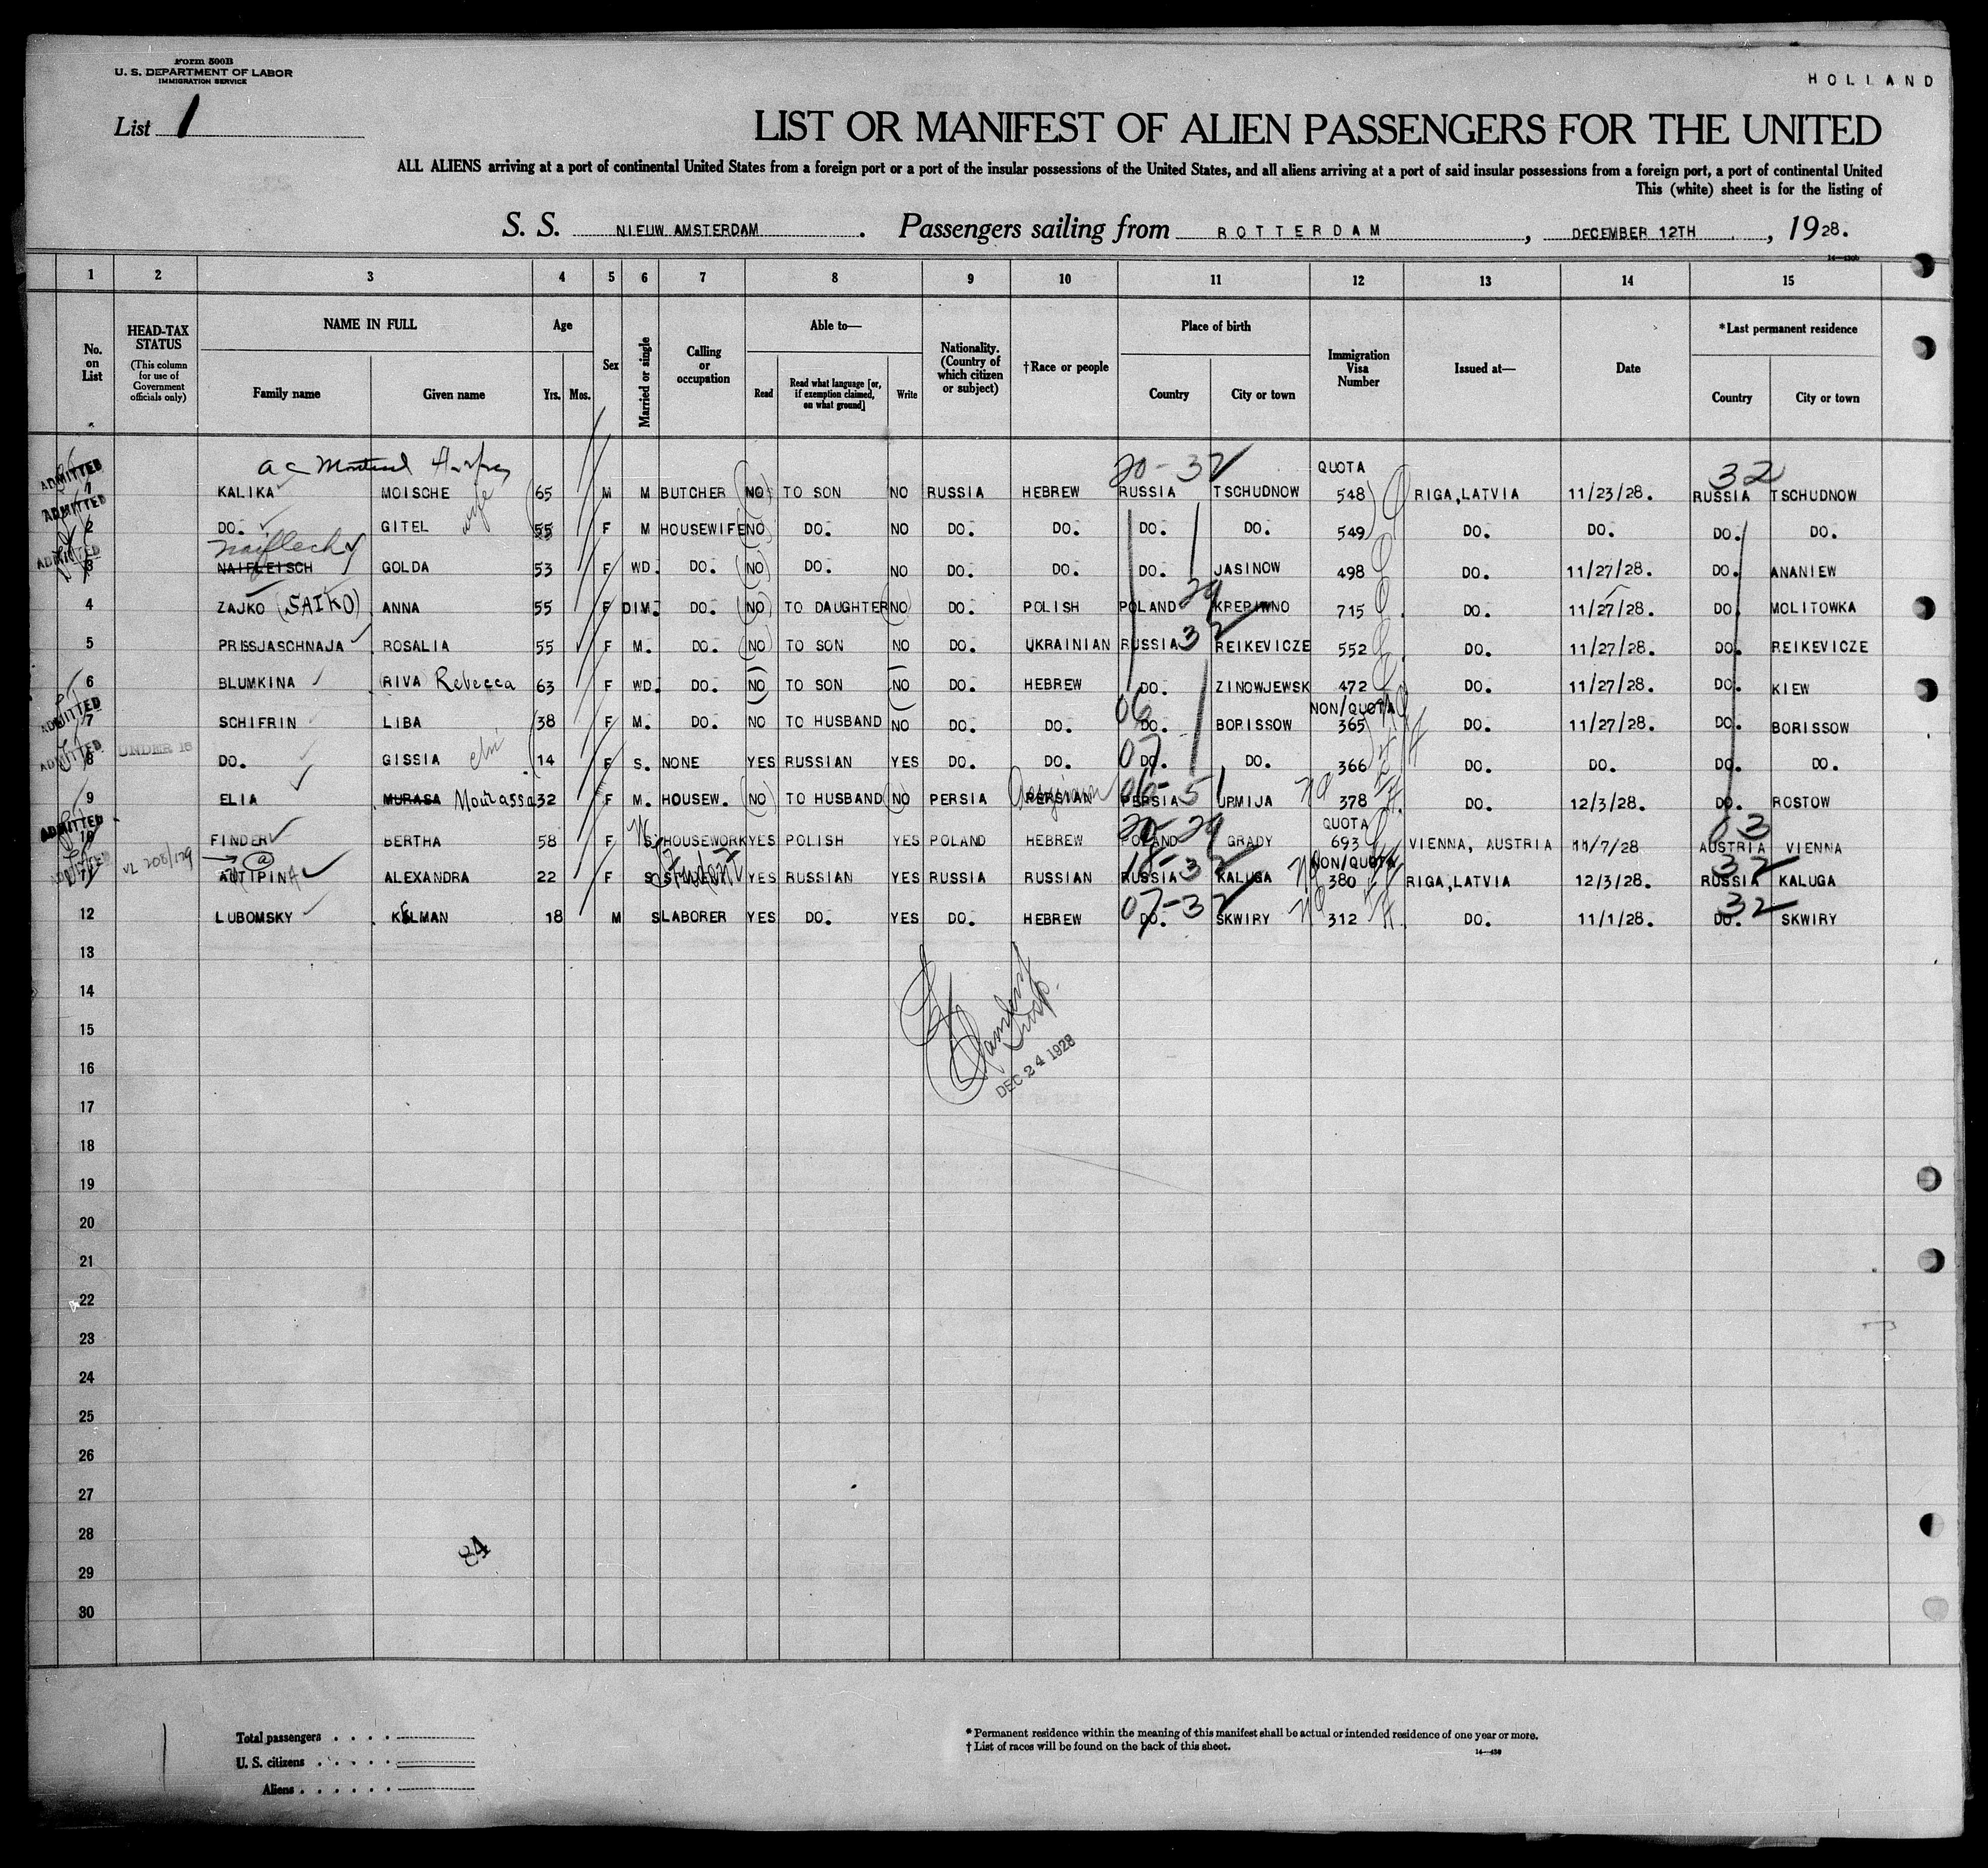 Form 500B
U. S. DEPARTMENT OF LABOR
IMMIGRATION SERVICE
HOLLAND
List 1
LIST OR MANIFEST OF ALIEN PASSENGERS FOR THE UNITED
ALL ALIENS arriving at a port of continental United States from a foreign port or a port of the insular possessions of the United States, and all aliens arriving at a port of said insular possessions from a foreign port, a port of continental United
This (white) sheet is for the listing of
S. S. NIEUW AMSTERDAM. Passengers sailing from ROTTERDAM, DECEMBER 12TH, 1928.
1 2 3 4 5 6 7 8 9 10 11 12 13 14 15
No. on List
HEAD-TAX STATUS
(This column for use of Government officials only)
NAME IN FULL
Family name Given name
Age
Yrs. Mos.
Sex
Married or single
Calling or occupation
Able to—
Read Read what language [or, if exemption claimed, on what ground] Write
Nationality. (Country of which citizen or subject)
†Race or people
Place of birth
Country City or town
Immigration Visa Number
Issued at—
Date
*Last permanent residence
Country City or town
20-32 QUOTA 32
ADMITTED 1 KALIKA MOISCHE 65 M M BUTCHER NO TO SON NO RUSSIA HEBREW RUSSIA TSCHUDNOW 548 RIGA, LATVIA 11/23/28. RUSSIA TSCHUDNOW
ADMITTED 2 DO. GITEL wife 55 F M HOUSEWIFE NO DO. NO DO. DO. DO. DO. 549 DO. DO. DO. DO.
ADMITTED 3 NAIFLEISCH GOLDA 53 F WD. DO. NO DO. NO DO. DO. DO. JASINOW 498 DO. 11/27/28. DO. ANANIEW
4 ZAJKO (SAIKO) ANNA 55 F DIM. DO. NO TO DAUGHTER NO DO. POLISH POLAND 29 715 DO. 11/27/28. DO. MOLITOWKA
5 PRISJASCHNAJA ROSALIA 55 F M. DO. NO TO SON NO DO. UKRAINIAN RUSSIA 32 REIKEVICZE 552 DO. 11/27/28. DO. REIKEVICZE
6 BLUMKINA RIVA Rebecca 63 F WD. DO. NO TO SON NO DO. HEBREW DO. ZINOWJEWSK 472 DO. 11/27/28. DO. KIEW
NON/QUOTA
ADMITTED 7 SCHIFRIN LIBA 38 F M. DO. NO TO HUSBAND NO DO. DO. 06 DO. BORISSOW 365 DO. 11/27/28. DO. BORISSOW
ADMITTED 8 UNDER 16 DO. GISSIA 14 F S. NONE YES RUSSIAN YES DO. DO. 07 DO. DO. 366 DO. DO. DO. DO.
9 ELIA MURASA Mourassa 32 F M. HOUSEW. NO TO HUSBAND NO PERSIA PERSIAN PERSIA URMIJA 378 DO. 12/3/28. DO. ROSTOW
QUOTA
ADMITTED 10 FINDER BERTHA 58 F S. HOUSEWORK YES POLISH YES POLAND HEBREW POLAND 20-29 GRADY 693 VIENNA, AUSTRIA 11/7/28 AUSTRIA VIENNA
NON/QUOTA
ADMITTED 11 ALEXANDRA 22 F S Student YES RUSSIAN YES RUSSIA RUSSIAN RUSSIA 18-32 KALUGA 380 RIGA, LATVIA 12/3/28. RUSSIA 32 KALUGA
12 LUBOMSKY KELMAN 18 M S LABORER YES DO. YES DO. HEBREW DO. 07-32 SKWIRY 312 DO. 11/1/28. DO. 32 SKWIRY
13
14
15
16
DEC 24 1928
17
18
19
20
21
22
23
24
25
26
27
28
84
29
30
Total passengers
U. S. citizens
Aliens
* Permanent residence within the meaning of this manifest shall be actual or intended residence of one year or more.
† List of races will be found on the back of this sheet.